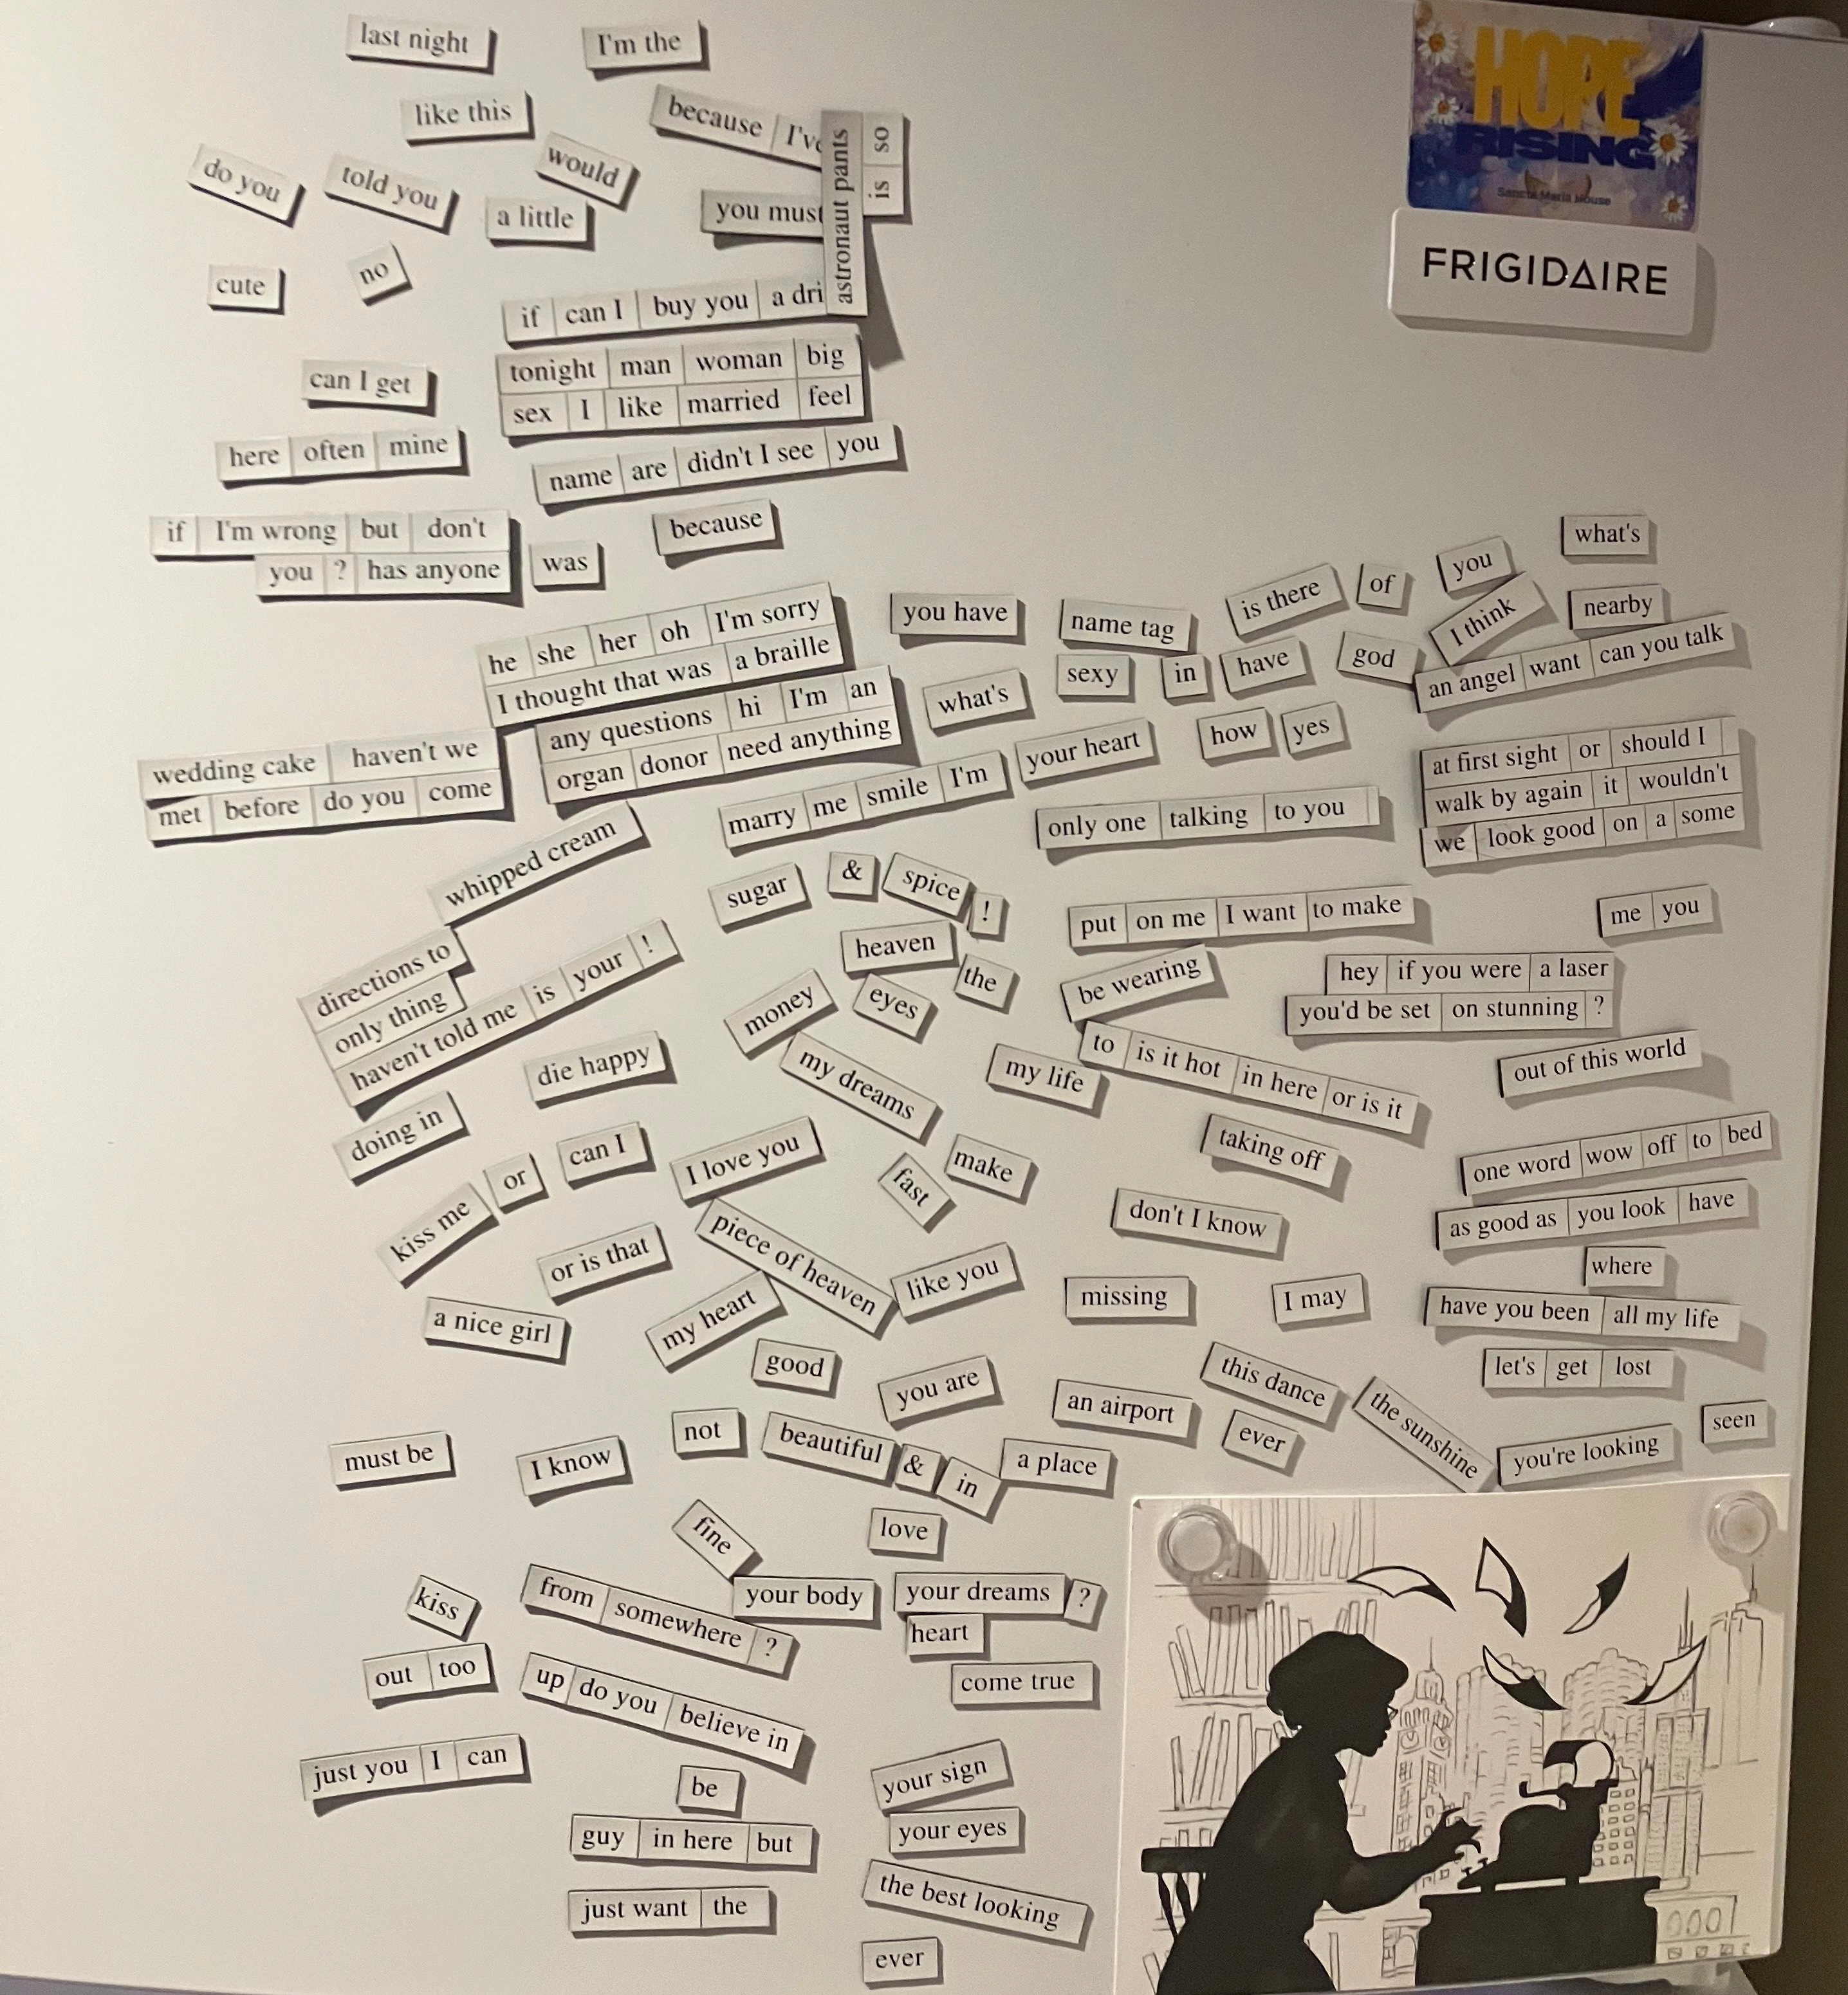 last night
I'm the
HOPE
RISING
Sancta Maria House
FRIGIDAIRE
like this
because I've
astronaut pants
is so
would
do you
told you
a little
you must
cute
no
if can I buy you a dri
tonight man woman big
sex I like married feel
can I get
here often mine
name are didn't I see you
if I'm wrong but don't
you ? has anyone
was
because
what's
is there
of
you
I think
nearby
he she her oh I'm sorry
I thought that was a braille
you have
name tag
sexy
in
have
god
an angel want can you talk
any questions hi I'm an
organ donor need anything
what's
wedding cake haven't we
met before do you come
marry me smile I'm
your heart
how
yes
at first sight or should I
walk by again it wouldn't
we look good on a some
only one talking to you
whipped cream
sugar
&
spice
!
put on me I want to make
me you
heaven
the
be wearing
hey if you were a laser
you'd be set on stunning ?
directions to
only thing
haven't told me is your !
money
eyes
my dreams
my life
to is it hot in here or is it
out of this world
die happy
doing in
can I
I love you
fast
make
taking off
one word wow off to bed
kiss me
or
don't I know
as good as you look have
or is that
piece of heaven
like you
where
missing
I may
have you been all my life
a nice girl
my heart
good
you are
this dance
let's get lost
an airport
ever
the sunshine
you're looking
seen
must be
I know
not
beautiful
&
in
a place
fine
love
kiss
from somewhere ?
your body
your dreams
?
heart
out too
up do you believe in
come true
just you I can
be
your sign
guy in here but
your eyes
just want the
the best looking
ever